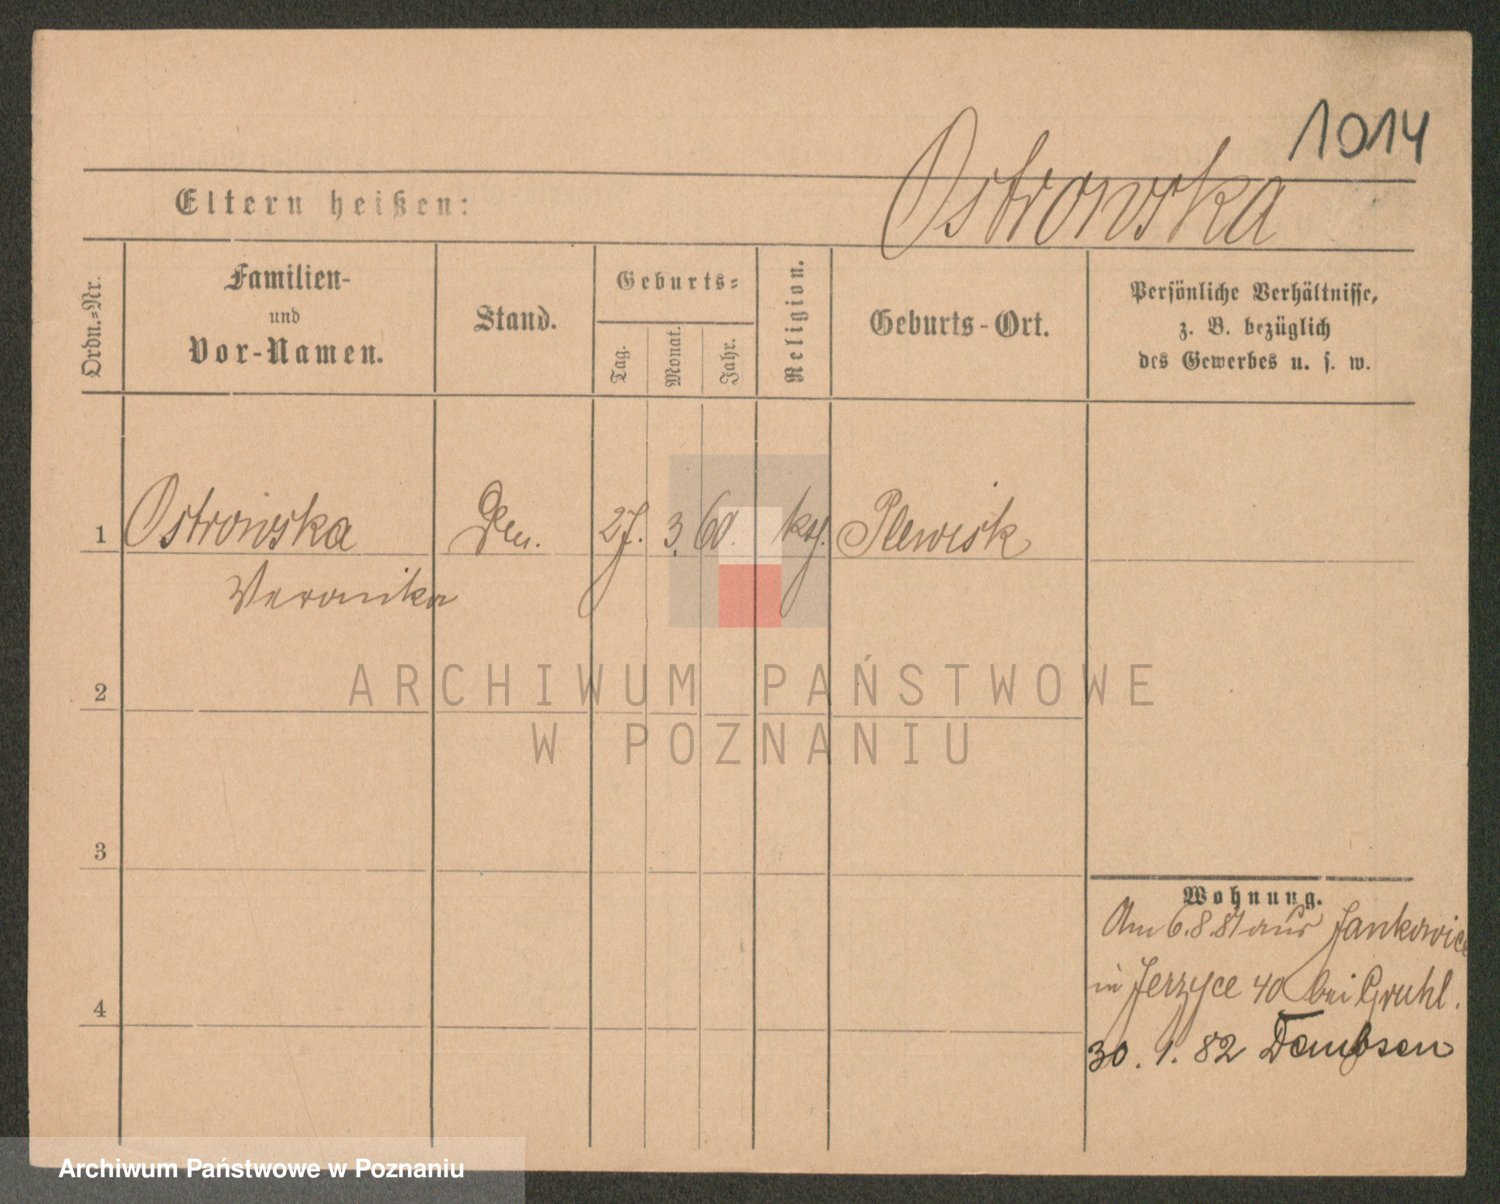 1014
Ostrowska
Eltern heißen:
Ordn.-Nr.
Familien-
und
Vor-Namen.
Stand.
Geburts-
Tag.
Monat.
Jahr.
Religion.
Geburts-Ort.
Persönliche Verhältnisse,
z. B. bezüglich
des Gewerbes u. s. w.
1 Ostrowska 27. 3. 60. Plewisk
Veronika
2
3
4
Wohnung.
Am 6.8.81 aus Jankowice
in Jerzyce 40 bei Gruhl.
30. 1. 82 Dembsen
ARCHIWUM PAŃSTWOWE
W POZNANIU
Archiwum Państwowe w Poznaniu